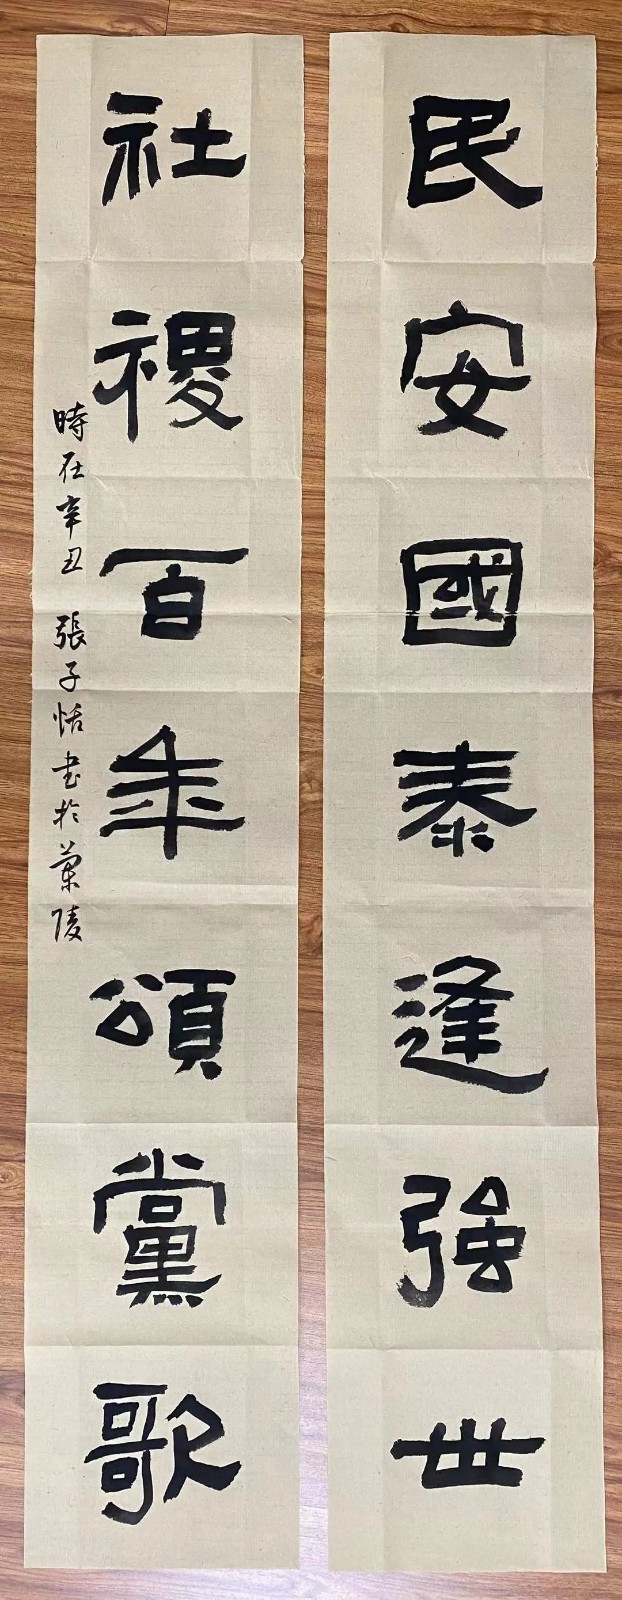 民安國泰逢强世
社稷百年頌黨歌
時在辛丑 張子恬書於蘭陵